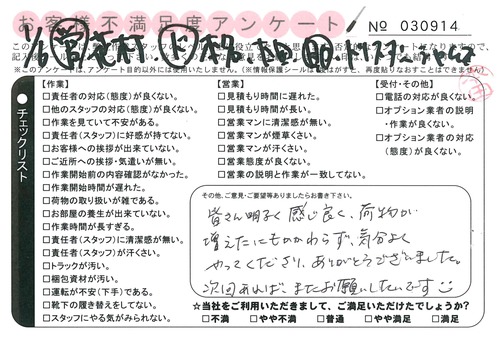 お客様不満足度アンケート
No 030914
※このアンケートは、アンケート目的以外には使用いたしません。(※情報保護シールをはがすと、再度貼りなおすことはできません)
チェックリスト
【作業】
□責任者の対応(態度)が良くない。
□他のスタッフの対応(態度)が良くない。
□作業を見ていて不安がある。
□責任者(スタッフ)に好感が持てない。
□お客様への挨拶が出来ていない。
□ご近所への挨拶・気遣いが無い。
□作業開始前の内容確認がなかった。
□作業開始時間が遅れた。
□荷物の取り扱いが雑である。
□お部屋の養生が出来ていない。
□作業時間が長すぎる。
□責任者(スタッフ)に清潔感が無い。
□責任者(スタッフ)が汗くさい。
□トラックが汚い。
□梱包資材が汚い。
□運転が不安(下手)である。
□靴下の履き替えをしてない。
□スタッフにやる気がみられない。
【営業】
□見積もり時間に遅れた。
□見積もり時間が長い。
□営業マンに清潔感が無い。
□営業マンが煙草くさい。
□営業マンが汗くさい。
□営業態度が良くない。
□営業の説明と作業が一致してない。
【受付・その他】
□電話の対応が良くない。
□オプション業者の説明
・作業が良くない。
□オプション業者の対応
(態度)が良くない。
その他、ご意見・ご要望等ありましたらお書き下さい。
皆さん明るく感じ良く、荷物が
増えたにもかかわらず、気分よく
やってくださり、ありがとうございました。
次回あれば、またお願いしたいです
☆当社をご利用いただきまして、ご満足いただけたでしょうか?
□不満 □やや不満 □普通 □やや満足 □満足